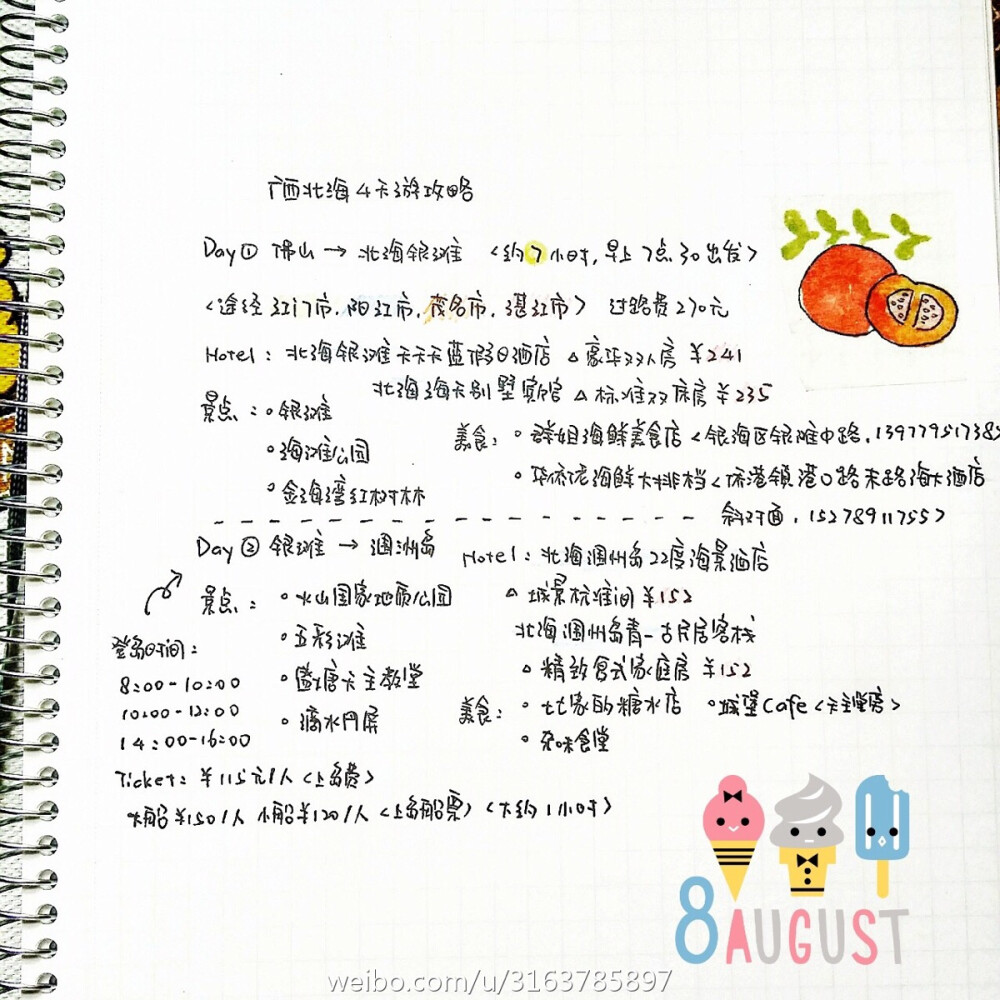 广西北海4天游攻略
Day① 佛山 → 北海银滩 <约7小时,早上7点30出发>
<途经江门市,阳江市,茂名市,湛江市> 过路费270元
Hotel: 北海银滩天天天蓝假日酒店 △豪华双人房 ¥241
北海海天别墅宾馆 △标准双床房 ¥235
景点:。银滩
。海滩公园
。金海湾红树林
美食:。群姐海鲜美食店<银海区银滩中路,1397795173
。华侨海鲜大排档<侨港镇港口路末路海大酒店
斜对面,15278911755>
Day② 银滩 → 涠洲岛
景点:。火山国家地质公园
。五彩滩
。盛塘天主教堂
。滴水丹屏
登岛时间:
8:00-10:00
10:00-12:00
14:00-16:00
Hotel: 北海涠州岛22度海景酒店
△城景标准间¥152
北海涠州岛青一古民居客栈
△精致复式家庭房 ¥152
美食:。七七家的糖水店 。城堡Cafe<天主堂店>
。杂味食堂
Ticket: ¥115元/人<上岛费>
大船¥150/人 小船¥120/人<上岛船票><大约1小时>
8AUGUST
weibo.com/u/3163785897